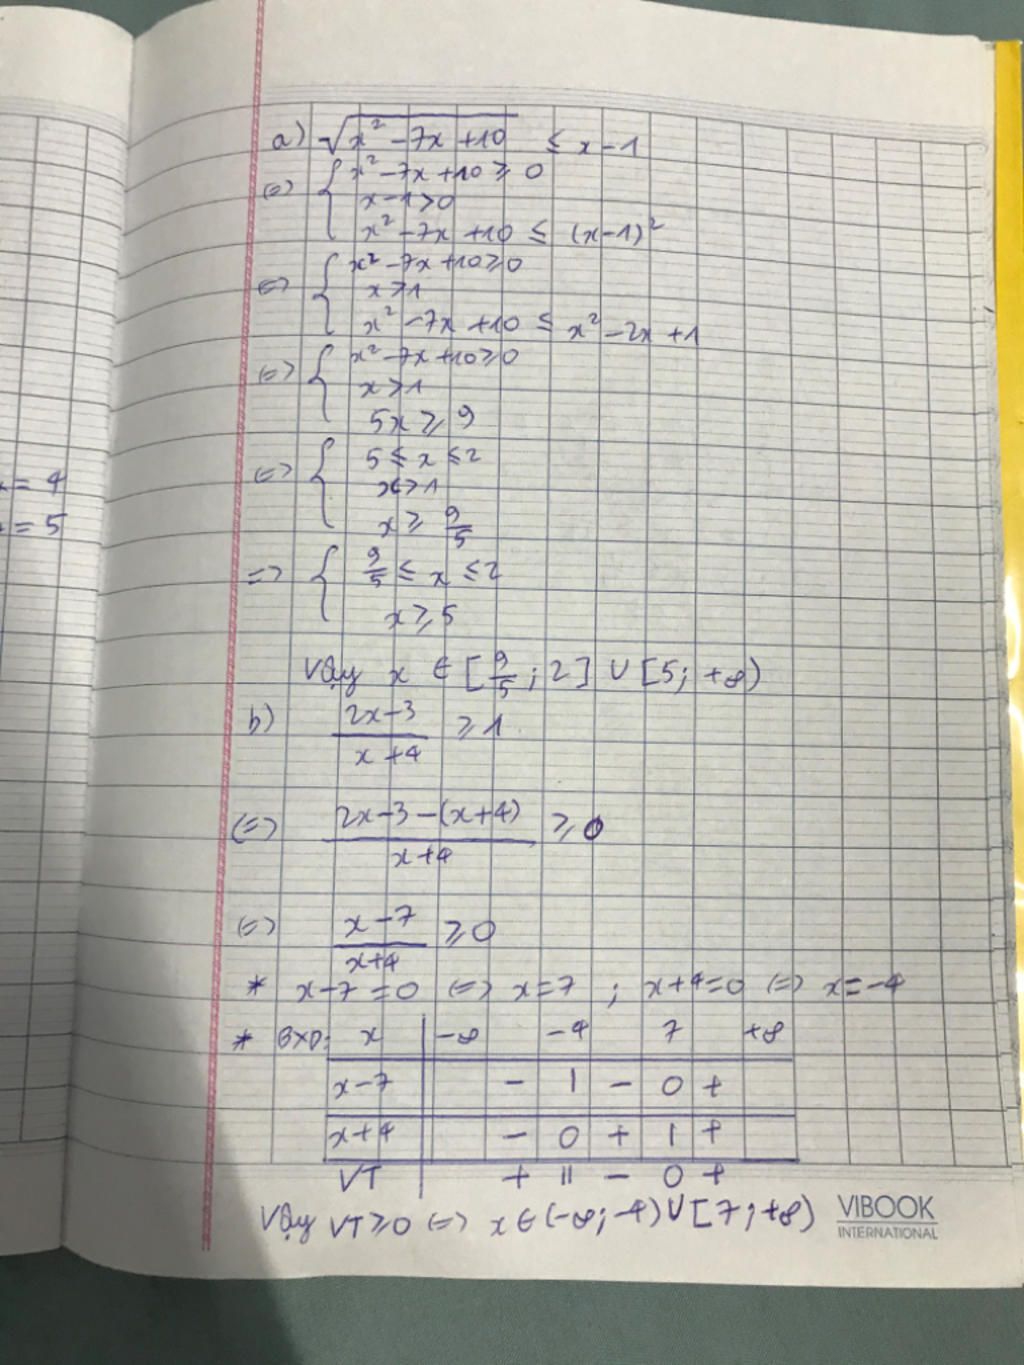 a) √(x² - 7x + 10) ≤ x - 1
(=) { x² - 7x + 10 ⩾ 0
x - 1 > 0
x² - 7x + 10 ≤ (x - 1)²
(=) { x² - 7x + 10 ⩾ 0
x > 1
x² - 7x + 10 ≤ x² - 2x + 1
(=) { x² - 7x + 10 ⩾ 0
x > 1
5x ⩾ 9
(=) { 5 ≤ x ≤ 2
x > 1
x ⩾ 9/5
=> { 9/5 ≤ x ≤ 2
x ⩾ 5
Vậy x ∈ [9/5 ; 2] ∪ [5; +∞)
b) (2x - 3)/(x + 4) ⩾ 1
(=) (2x - 3 - (x + 4))/(x + 4) ⩾ 0
(=) (x - 7)/(x + 4) ⩾ 0
* x - 7 = 0 (=) x = 7 ; x + 4 = 0 (=) x = -4
* BXD: x | -∞ -4 7 +∞
x - 7 | - | - 0 +
x + 4 | - 0 + | +
VT | + || - 0 +
Vậy VT ⩾ 0 (=) x ∈ (-∞; -4) ∪ [7; +∞)
VIBOOK
INTERNATIONAL
= 4
= 5